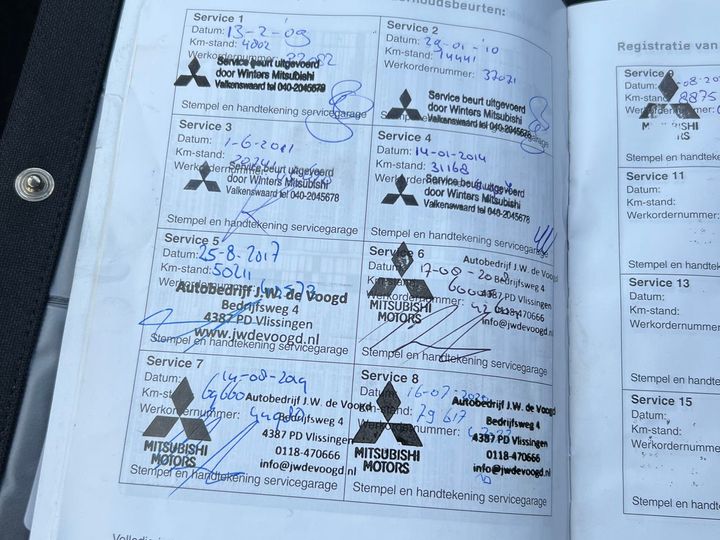 houdsbeurten:
Service 1
Datum: 13-2-09
Km-stand: 4002
Werkordernummer:
Service beurt uitgevoerd
door Winters Mitsubishi
Valkenswaard tel 040-2045678
Stempel en handtekening servicegarage
Service 2
Datum: 29-01-'10
Km-stand: 14441
Werkordernummer: 37071
Service beurt uitgevoerd
door Winters Mitsubishi
Valkenswaard tel 040-2045678
Service 3
Datum: 1-6-2011
Km-stand:
Werkordernummer
Service beurt uitgevoerd
door Winters Mitsubishi
Valkenswaard tel 040-2045678
Stempel en handtekening servicegarage
Service 4
Datum: 14-01-2014
Km-stand: 31168
Werkordernummer:
Service beurt uitgevoerd
door Winters Mitsubishi
Valkenswaard tel 040-2045678
Stempel en handtekening servicegarage
Service 5
Datum: 25-8-2017
Km-stand: 50211
Werkordernummer:
Autobedrijf J.W. de Voogd
Bedrijfsweg 4
4387 PD Vlissingen
www.jwdevoogd.nl
Stempel en handtekening servicegarage
Service 6
Autobedrijf J.W. de Voogd
Datum: 17-08-
Km-stand:
4387 PD Vlissingen
Werkordernummer:
info@jwdevoogd.nl
MITSUBISHI
MOTORS
Stempel en handtekening servicegarage
Service 7
Datum: 14-08-2019
Km-stand: 69660
Werkordernummer:
Autobedrijf J.W. de Voogd
Bedrijfsweg 4
4387 PD Vlissingen
0118-470666
info@jwdevoogd.nl
MITSUBISHI
MOTORS
Stempel en handtekening servicegarage
Service 8
Datum: 16-07-2020
Km-stand: 79617
Werkordernummer:
Autobedrijf J.W. de Voogd
Bedrijfsweg 4
4387 PD Vlissingen
0118-470666
info@jwdevoogd.nl
MITSUBISHI
MOTORS
Stempel en handtekening servicegarage
Registratie van
Service 9
Datum:
Km-stand: 8875
Werkordernummer
Stempel en handtekening
Service 11
Datum:
Km-stand:
Werkordernummer:
Stempel en handtekening
Service 13
Datum:
Km-stand:
Werkordernummer:
Stempel en handtekening
Service 15
Datum:
Km-stand:
Werkordernummer:
Stempel en handtekening